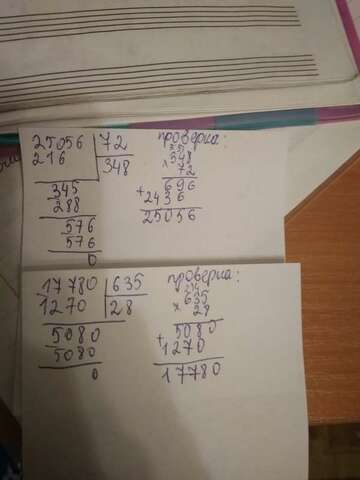 25056 72
216 348
345
288
576
576
0
проверка:
348
× 72
696
+ 2436
25056
17780 635
1270 28
5080
5080
0
проверка:
635
× 28
5080
+ 1270
17780